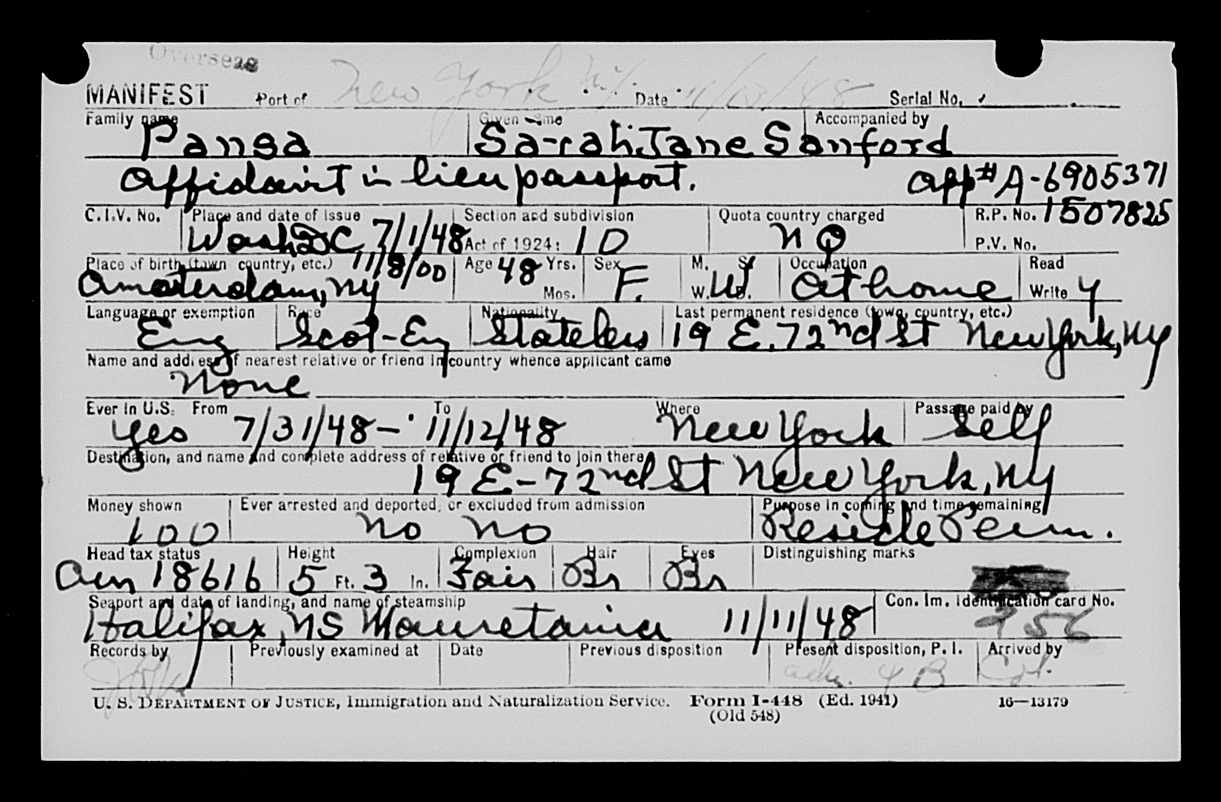 Overseas
MANIFEST Port of New York N.Y. Date 11/13/48 Serial No.
Family name Given name Accompanied by
Pansa Sarah Jane Sanford
Affidavit in lieu passport. App# A-6905371
C.I.V. No. Place and date of issue Section and subdivision Quota country charged R.P. No. 1507825
Wash DC 7/1/48 Act of 1924: 10 NQ P.V. No.
Place of birth (town country, etc.) 11/8/00 Age 48 Yrs. Sex M. S. Occupation Read
Amsterdam, NY Mos. F. W. W D. At home Write y
Language or exemption Race Nationality Last permanent residence (town, country, etc.)
Eng Scot-En Stateless 19 E. 72nd St New York, NY
Name and address of nearest relative or friend in country whence applicant came
None
Ever in U.S. From To Where Passage paid by
Yes 7/31/48 - 11/12/48 New York Self
Destination, and name and complete address of relative or friend to join there
19 E-72nd St New York, NY
Money shown Ever arrested and deported, or excluded from admission Purpose in coming and time remaining
100 No No Reside Perm.
Head tax status Height Complexion Hair Eyes Distinguishing marks
18616 5 Ft. 3 In. Fair Br Br
Seaport and date of landing, and name of steamship Con. Im. Identification card No.
Halifax, NS Mauretania 11/11/48 956
Records by Previously examined at Date Previous disposition Present disposition, P. I. Arrived by
adm. 4 B
U. S. DEPARTMENT OF JUSTICE, Immigration and Naturalization Service. Form I-448 (Ed. 1941) 16—13179
(Old 548)